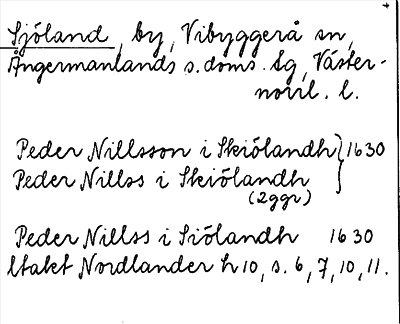 Sjöland, by, Vibyggerå sn,
Ångermanlands s. doms. tg, Väster-
norrl. l.
Peder Nillsson i Skiölandh } 1630
Peder Nillss i Skiölandh
(2ggr)
Peder Nillss i Siölandh 1630
Utakt Nordlander h 10, s. 6, 7, 10, 11.